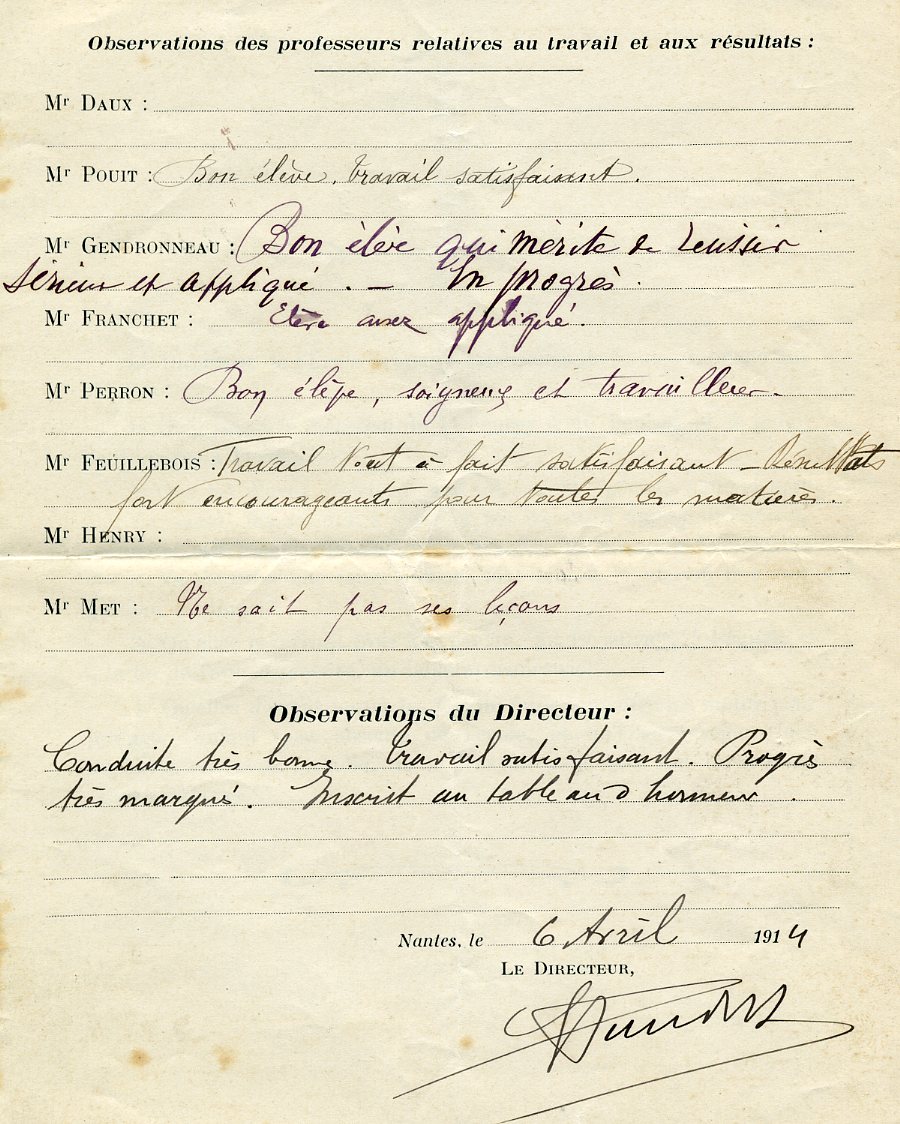 Observations des professeurs relatives au travail et aux résultats :
Mr DAUX :
Mr POUIT : Bon élève. travail satisfaisant.
Mr GENDRONNEAU : Bon élève qui mérite de reussir
sérieux et appliqué. — En progrès.
Mr FRANCHET : Elève assez appliqué.
Mr PERRON : Bon élève, soigneux et travailleur.
Mr FEUILLEBOIS : Travail tout à fait satisfaisant — Résultats
fort encourageants pour toutes les matières.
Mr HENRY :
Mr MET : Ne sait pas ses leçons
Observations du Directeur :
Conduite très bonne. Travail satisfaisant. Progrès
très marqué. Inscrit au tableau d honneur.
Nantes, le 6 Avril 1914
LE DIRECTEUR,